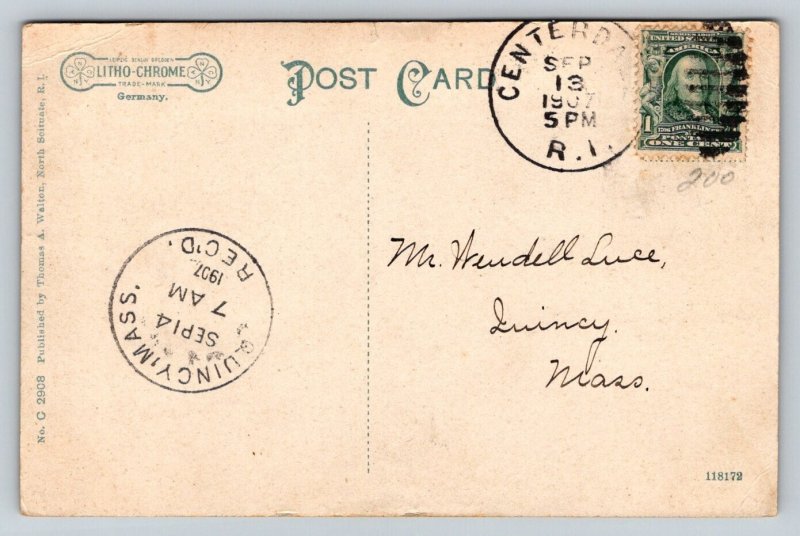 LEIPZIG BERLIN DRESDEN
LITHO-CHROME
TRADE-MARK
Germany.
POST CARD
CENTERDA
SEP
13
1907
5 PM
R.I.
SERIES 1902
UNITED STATES
AMERICA
FRANKLIN
POSTA
1 ONE CENT
200
No. C 2908 Published by Thomas A. Walton, North Scituate, R.I.
QUINCY, MASS.
SEP 14
7 AM
1907
REC'D.
Mr. Wendell Luce,
Quincy.
Mass.
118172